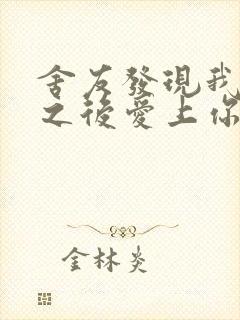 舍友發現我
之後愛上你
金林炎